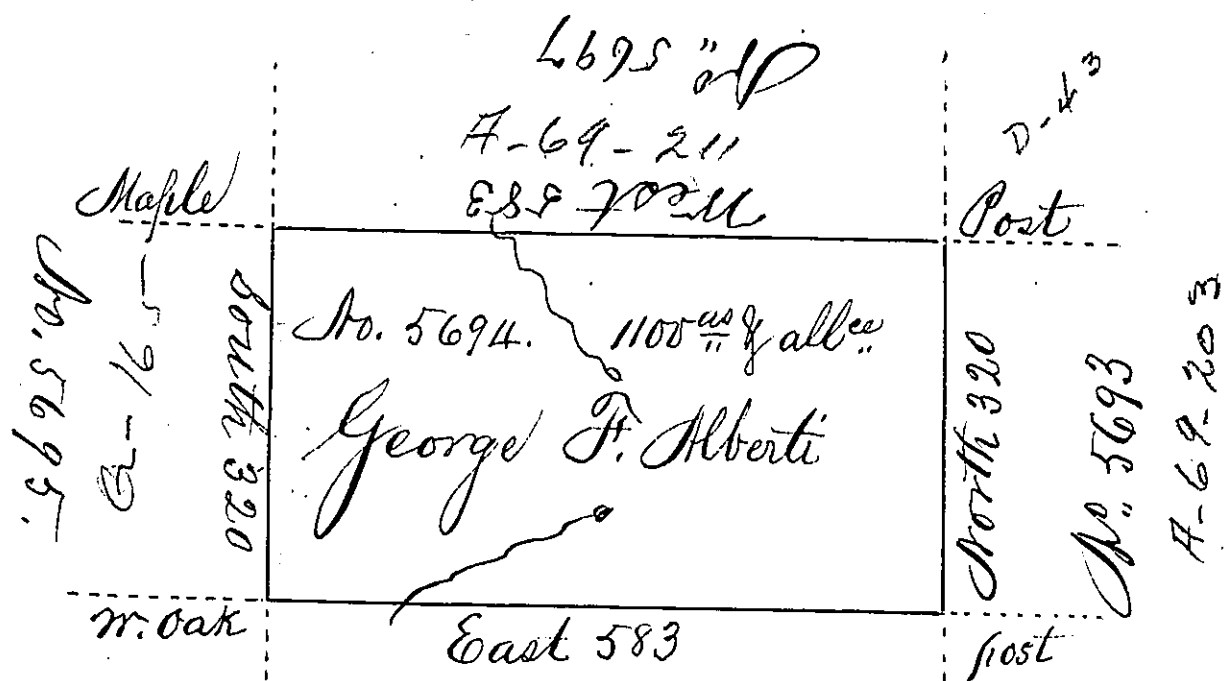 No. 5697
A-69-211
D-43
Maple
West 583
Post
No. 5695.
South 320
No. 5694. 1100 as & allce
George F. Alberti
North 320
No 5693
A-69-203
W. Oak
East 583
post